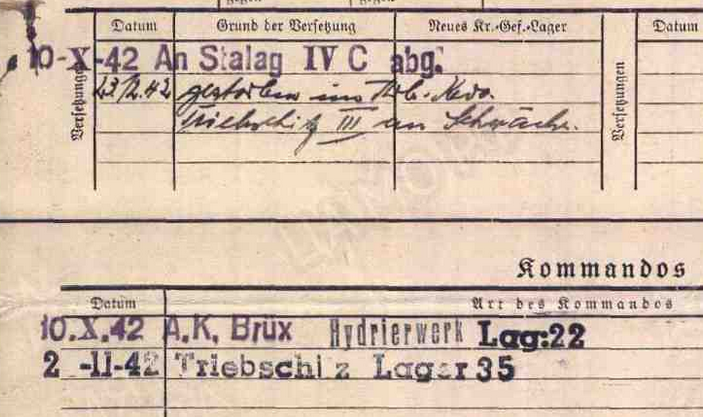 gegen gegen
Datum Grund der Versetzung Neues Kr.-Gef.-Lager Datum
Versetzungen Versetzungen
10-X-42 An Stalag IV C abg.
23.12.42 gestorben im Arb. Kdo.
Triebschitz III an Schwäche.
Kommandos
Datum Art des Kommandos
10.X.42 A.K. Brüx Hydrierwerk Lag:22
2 -11-42 Triebschi z Lager 35